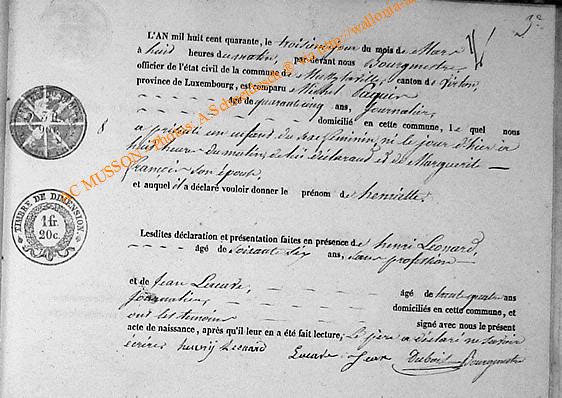 L'AN mil huit cent quarante, le troisième jour du mois de Mars
à huid heures du matin, par devant nous Bourgmestre
officier de l'état civil de la commune de canton de Virton,
province de Luxembourg, est comparu Michel Paquin
âgé de quarante cinq ans, Journalier,
domicilié en cette commune, lequel nous
a présenté un enfand du sexe féminin, né le jour d'hier a
huit heure du matin, de lui déclarand et de Marguerit
francois son épouse,
et auquel il a déclaré vouloir donner le prénom de henriette.
Lesdites déclaration et présentation faites en présence de henri Leonard,
âgé de soisante six ans, sans profession
et de Jean Lucard, âgé de trente quatre ans
journalier, domiciliés en cette commune, et
ont les temoins signé avec nous le présent
acte de naissance, après qu'il leur en a été fait lecture, le père a déclaré ne savoir
écrire henry Leonard Lucard Jean Dubois Bourgmestre
TIMBRE DE DIMENSION.
1 fr.
20 c.
C MUSSON Photos: A.S @ via http://wallonia